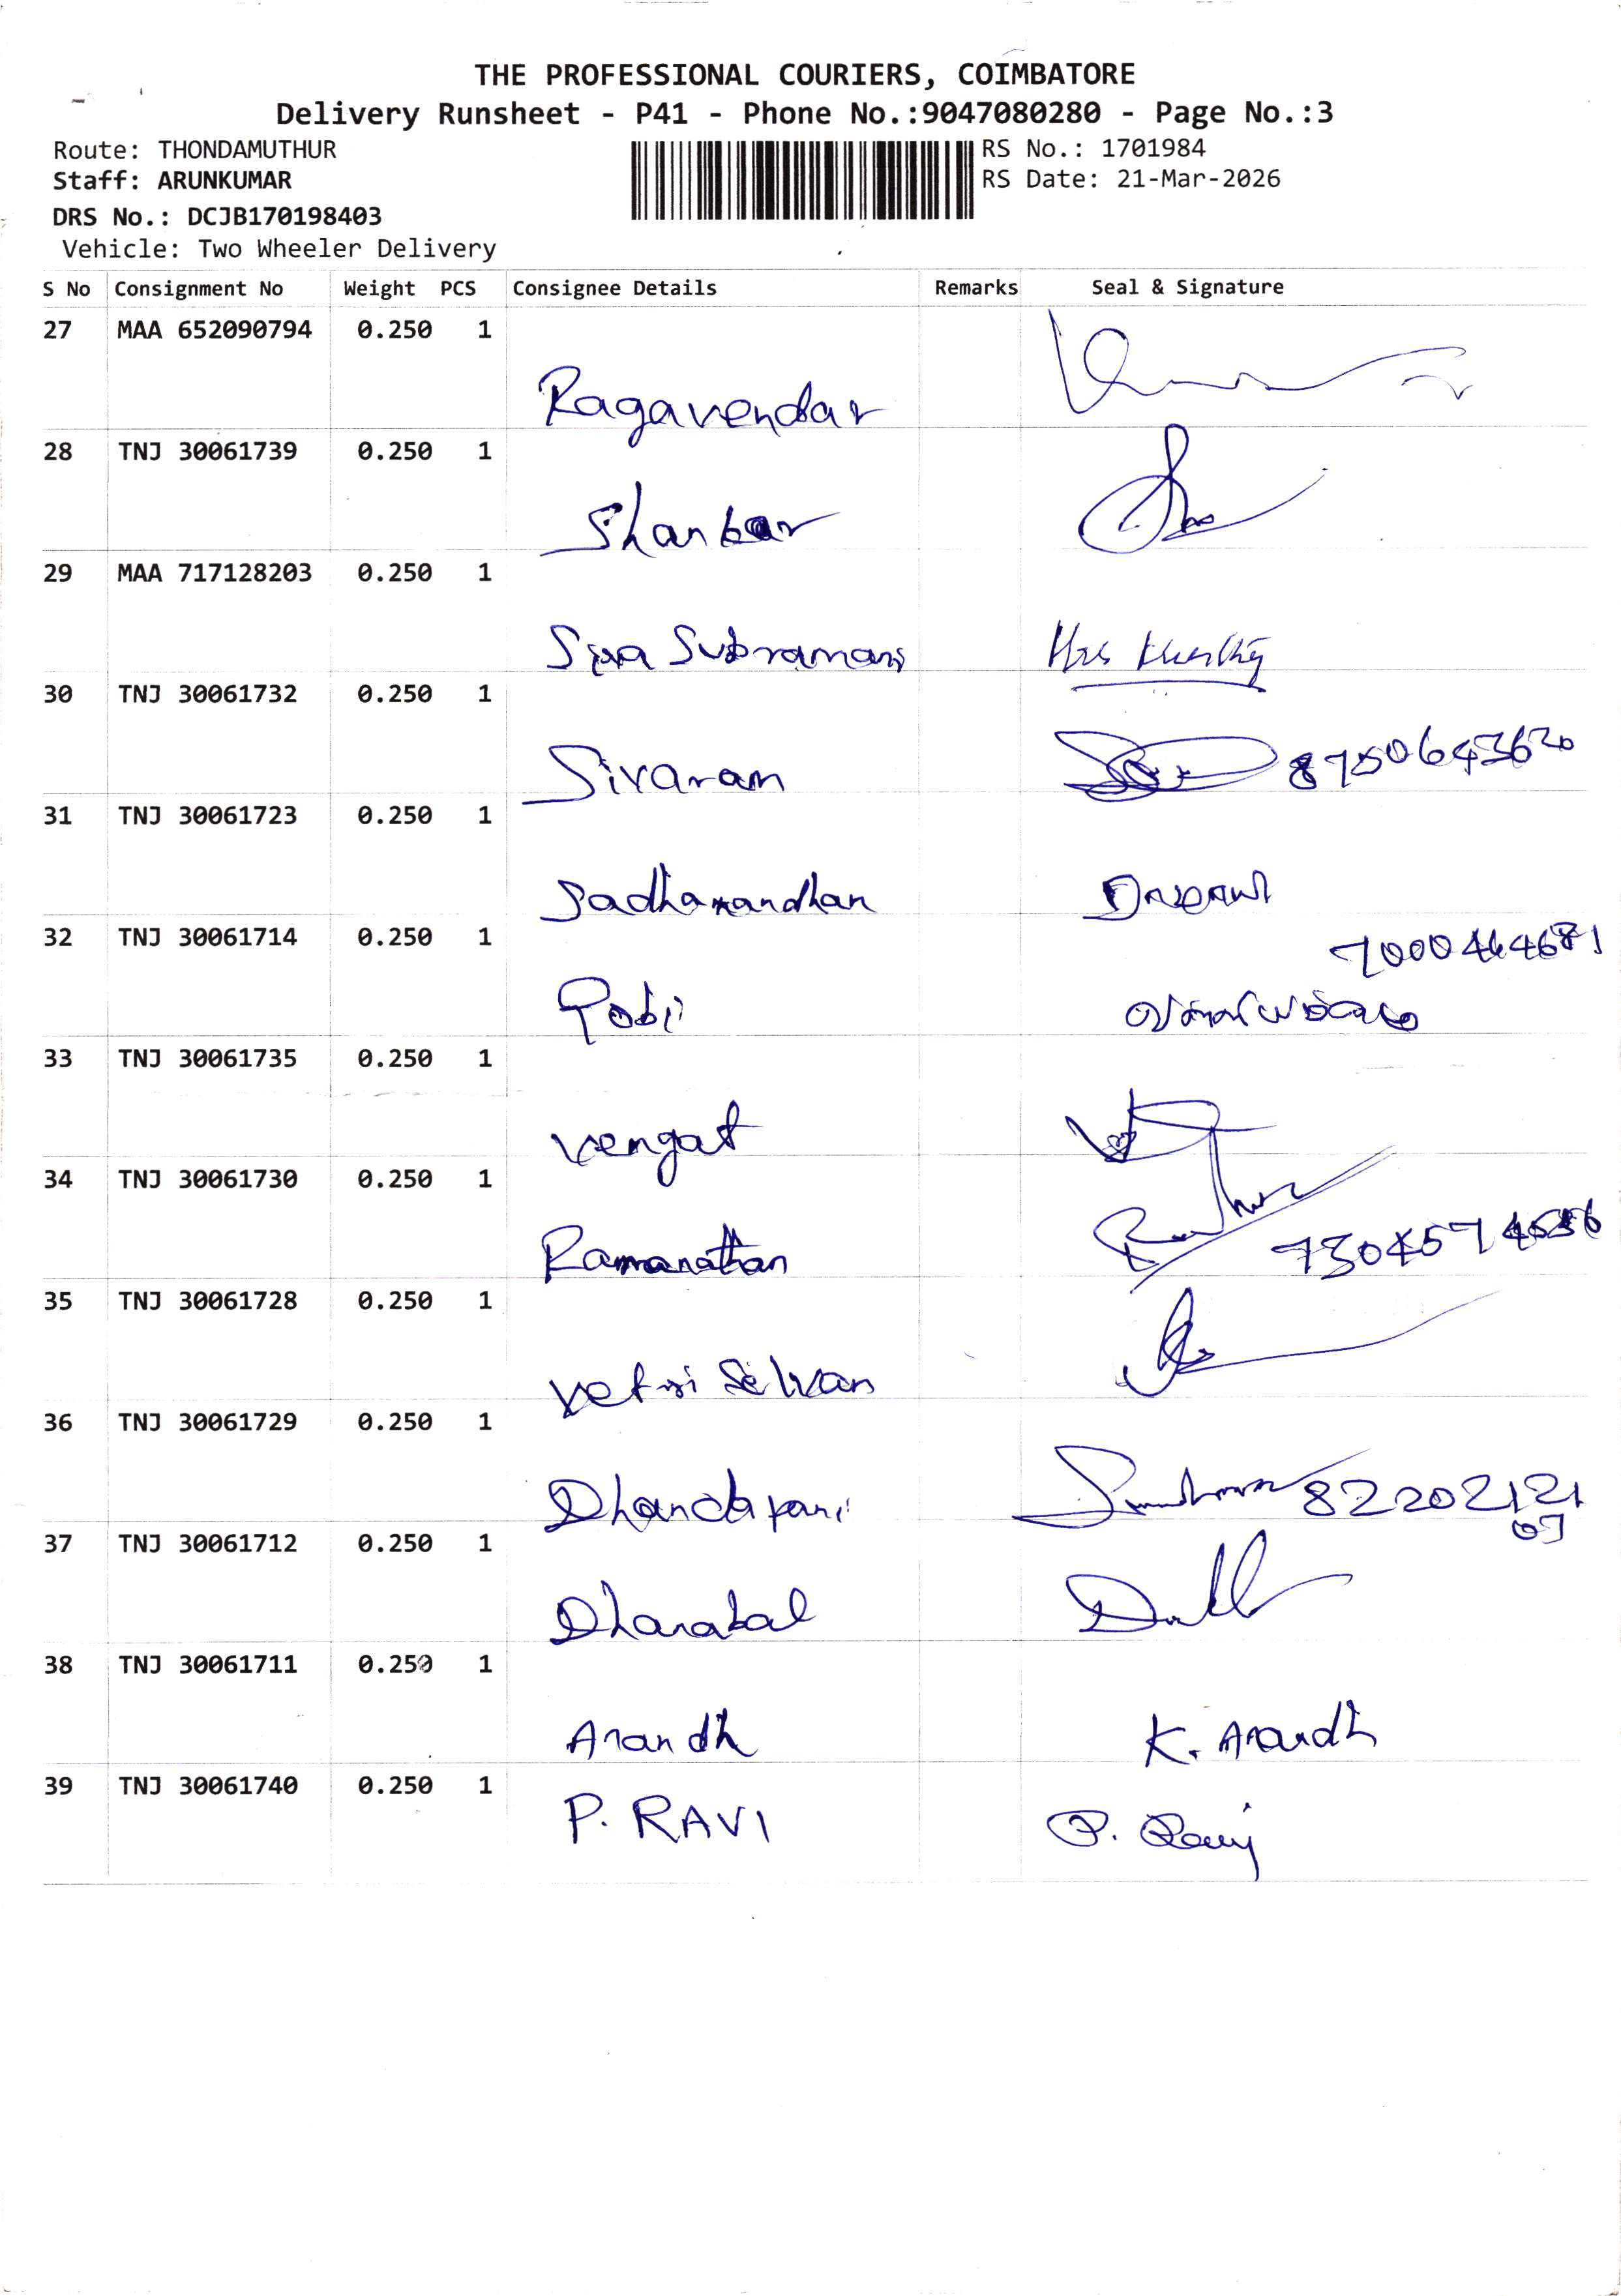 THE PROFESSIONAL COURIERS, COIMBATORE
Delivery Runsheet - P41 - Phone No.:9047080280 - Page No.:3
Route: THONDAMUTHUR
RS No.: 1701984
Staff: ARUNKUMAR
RS Date: 21-Mar-2026
DRS No.: DCJB170198403
Vehicle: Two Wheeler Delivery
S No Consignment No Weight PCS Consignee Details Remarks Seal & Signature
27 MAA 652090794 0.250 1
Ragavendar
28 TNJ 30061739 0.250 1
Shankar
29 MAA 717128203 0.250 1
Siva Subramani
30 TNJ 30061732 0.250 1
Sivaram
31 TNJ 30061723 0.250 1
Sadhanandhan
32 TNJ 30061714 0.250 1
Gobi
33 TNJ 30061735 0.250 1
Vengat
34 TNJ 30061730 0.250 1
Ramanathan
35 TNJ 30061728 0.250 1
Vetri Selvan
36 TNJ 30061729 0.250 1
Dhandapani 82202121
07
37 TNJ 30061712 0.250 1
Dhanabal
38 TNJ 30061711 0.250 1
Anandh K. Anandh
39 TNJ 30061740 0.250 1
P. RAVI P. Ravi